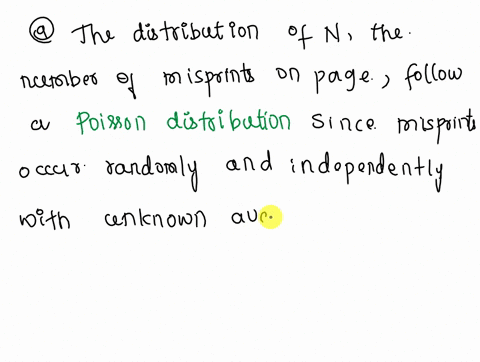 ⓐ The distribution of N, the
number of misprints on page, follow
a Poisson distribution since misprints
occur randomly and independently
with unknown ave